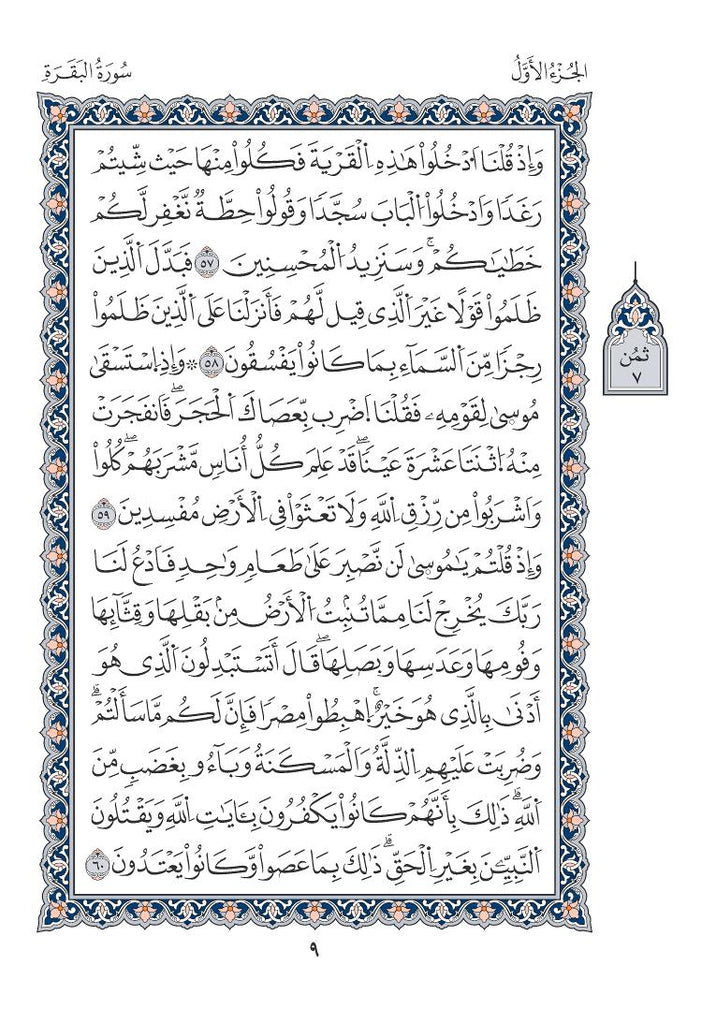 الجُزْءُ الأَوَّلُ
سُورَةُ البَقَرَةِ
وَإِذْ قُلْنَا اَدْخُلُواْ هَٰذِهِ اِلْقَرْيَةَ فَكُلُواْ مِنْهَا حَيْث شِّيتُمْ
رَغَدًا وَادْخُلُواْ اُلْبَابَ سُجَّدًا وَقُولُواْ حِطَّةٌ نَّغْفِر لَّكُمْ
خَطَٰيَٰكُمْۚ وَسَنَزِيدُ اُلْمُحْسِنِينَ ٥٧ فَبَدَّلَ اَلَّذِينَ
ظَلَمُواْ قَوْلًا غَيْرَ اَلَّذِي قِيل لَّهُمْ فَأَنزَلْنَا عَلَى اَلَّذِينَ ظَلَمُواْ
رِجْزًا مِّنَ اَلسَّمَآءِ بِمَا كَانُواْ يَفْسُقُونَ ٥٨ ۞ وَإِذِ اِسْتَسْقَىٰ
مُوسىٰ لِقَوْمِهِۦ فَقُلْنَا اَضْرِب بِّعَصَاكَ اَلْحَجَرَۖ فَانفَجَرَتْ
مِنْهُ اُثْنَتَا عَشْرَةَ عَيْنًاۖ قَدْ عَلِمَ كُلُّ أُنَاسٍ مَّشْرَبَهُمْۖ كُلُواْ
وَاشْرَبُواْ مِن رِّزْقِ اِللَّهِ وَلَا تَعْثَوْاْ فِي اِلْأَرْضِ مُفْسِدِينَ ٥٩
وَإِذْ قُلْتُمْ يَٰمُوسىٰ لَن نَّصْبِرَ عَلَىٰ طَعَامٍ وَٰحِدٍ فَادْعُ لَنَا
رَبَّكَ يُخْرِجْ لَنَا مِمَّا تُنۢبِتُ اُلْأَرْضُ مِنۢ بَقْلِهَا وَقِثَّآئِهَا
وَفُومِهَا وَعَدَسِهَا وَبَصَلِهَاۖ قَالَ أَتَسْتَبْدِلُونَ اَلَّذِي هُوَ
أَدْنَىٰ بِالَّذِي هُوَ خَيْرٌۚ اِهْبِطُواْ مِصْرًا فَإِنَّ لَكُم مَّا سَأَلْتُمْۗ
وَضُرِبَتْ عَلَيْهِمِ اِلذِّلَّةُ وَالْمَسْكَنَةُ وَبَآءُو بِغَضَبٍ مِّنَ
اَللَّهِۗ ذَٰلِكَ بِأَنَّهُمْ كَانُواْ يَكْفُرُونَ بِـَٔايَٰتِ اِللَّهِ وَيَقْتُلُونَ
اَلنَّبِيِّـۧنَ بِغَيْرِ اِلْحَقِّۗ ذَٰلِكَ بِمَا عَصَواْ وَّكَانُواْ يَعْتَدُونَ ٦٠
ثُمُن
٧
٩